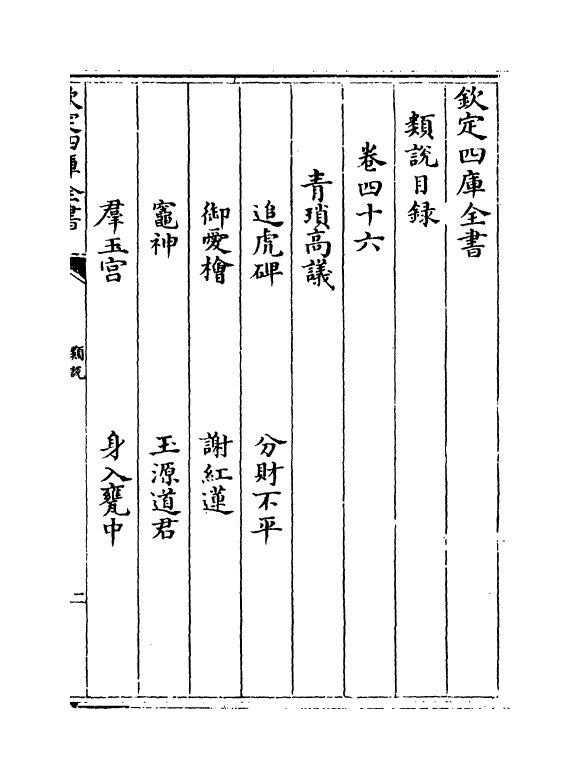 欽定四庫全書
類說目録
卷四十六
青瑣高議
追虎碑　分財不平
御愛檜　謝紅蓮
竈神　玉源道君
羣玉宫　身入甕中
欽定四庫全書　類說　二